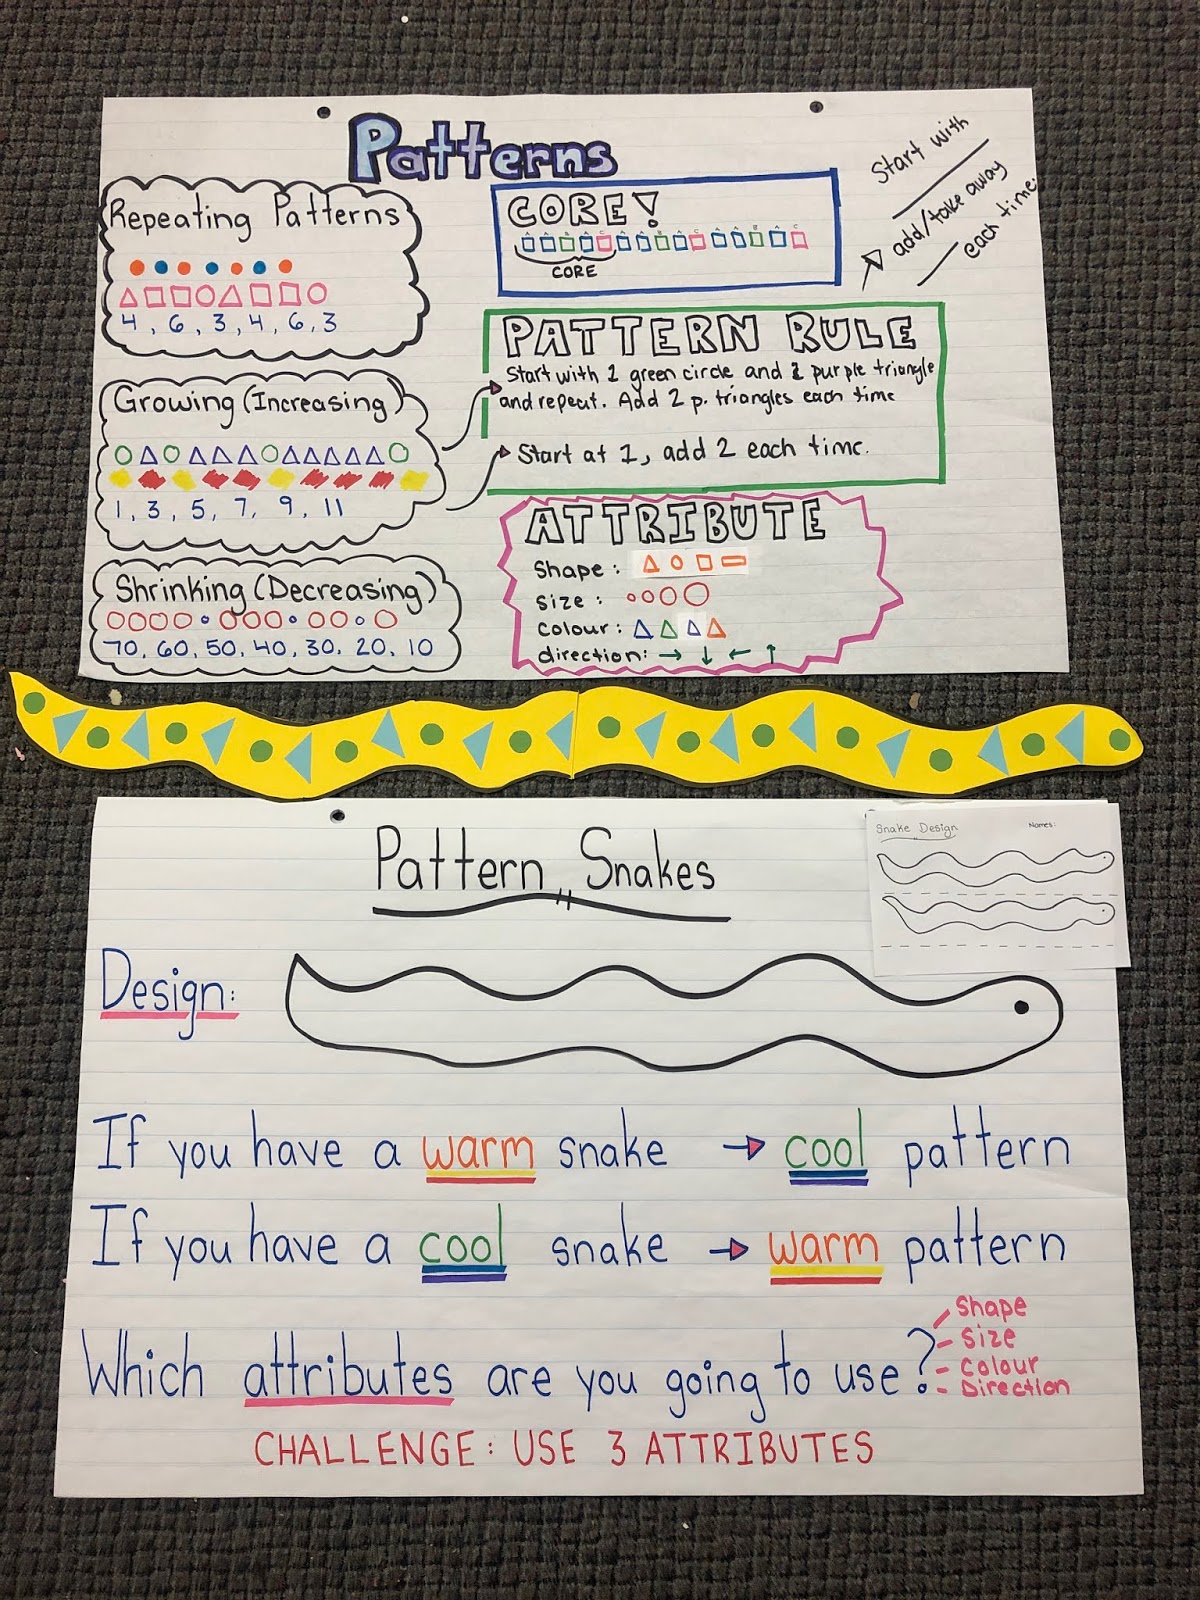 Patterns
Repeating Patterns
4, 6, 3, 4, 6, 3
Growing (Increasing)
1, 3, 5, 7, 9, 11
Shrinking (Decreasing)
70, 60, 50, 40, 30, 20, 10
CORE!
CORE
Start with
add/take away
each time.
PATTERN RULE
Start with 1 green circle and 1 purple triangle
and repeat. Add 2 p. triangles each time
Start at 1, add 2 each time.
ATTRIBUTE
Shape:
Size:
Colour:
direction:
Pattern Snakes
Snake Design Names:
Design:
If you have a warm snake → cool pattern
If you have a cool snake → warm pattern
Which attributes are you going to use?
Shape
- Size
- Colour
- Direction
CHALLENGE: USE 3 ATTRIBUTES